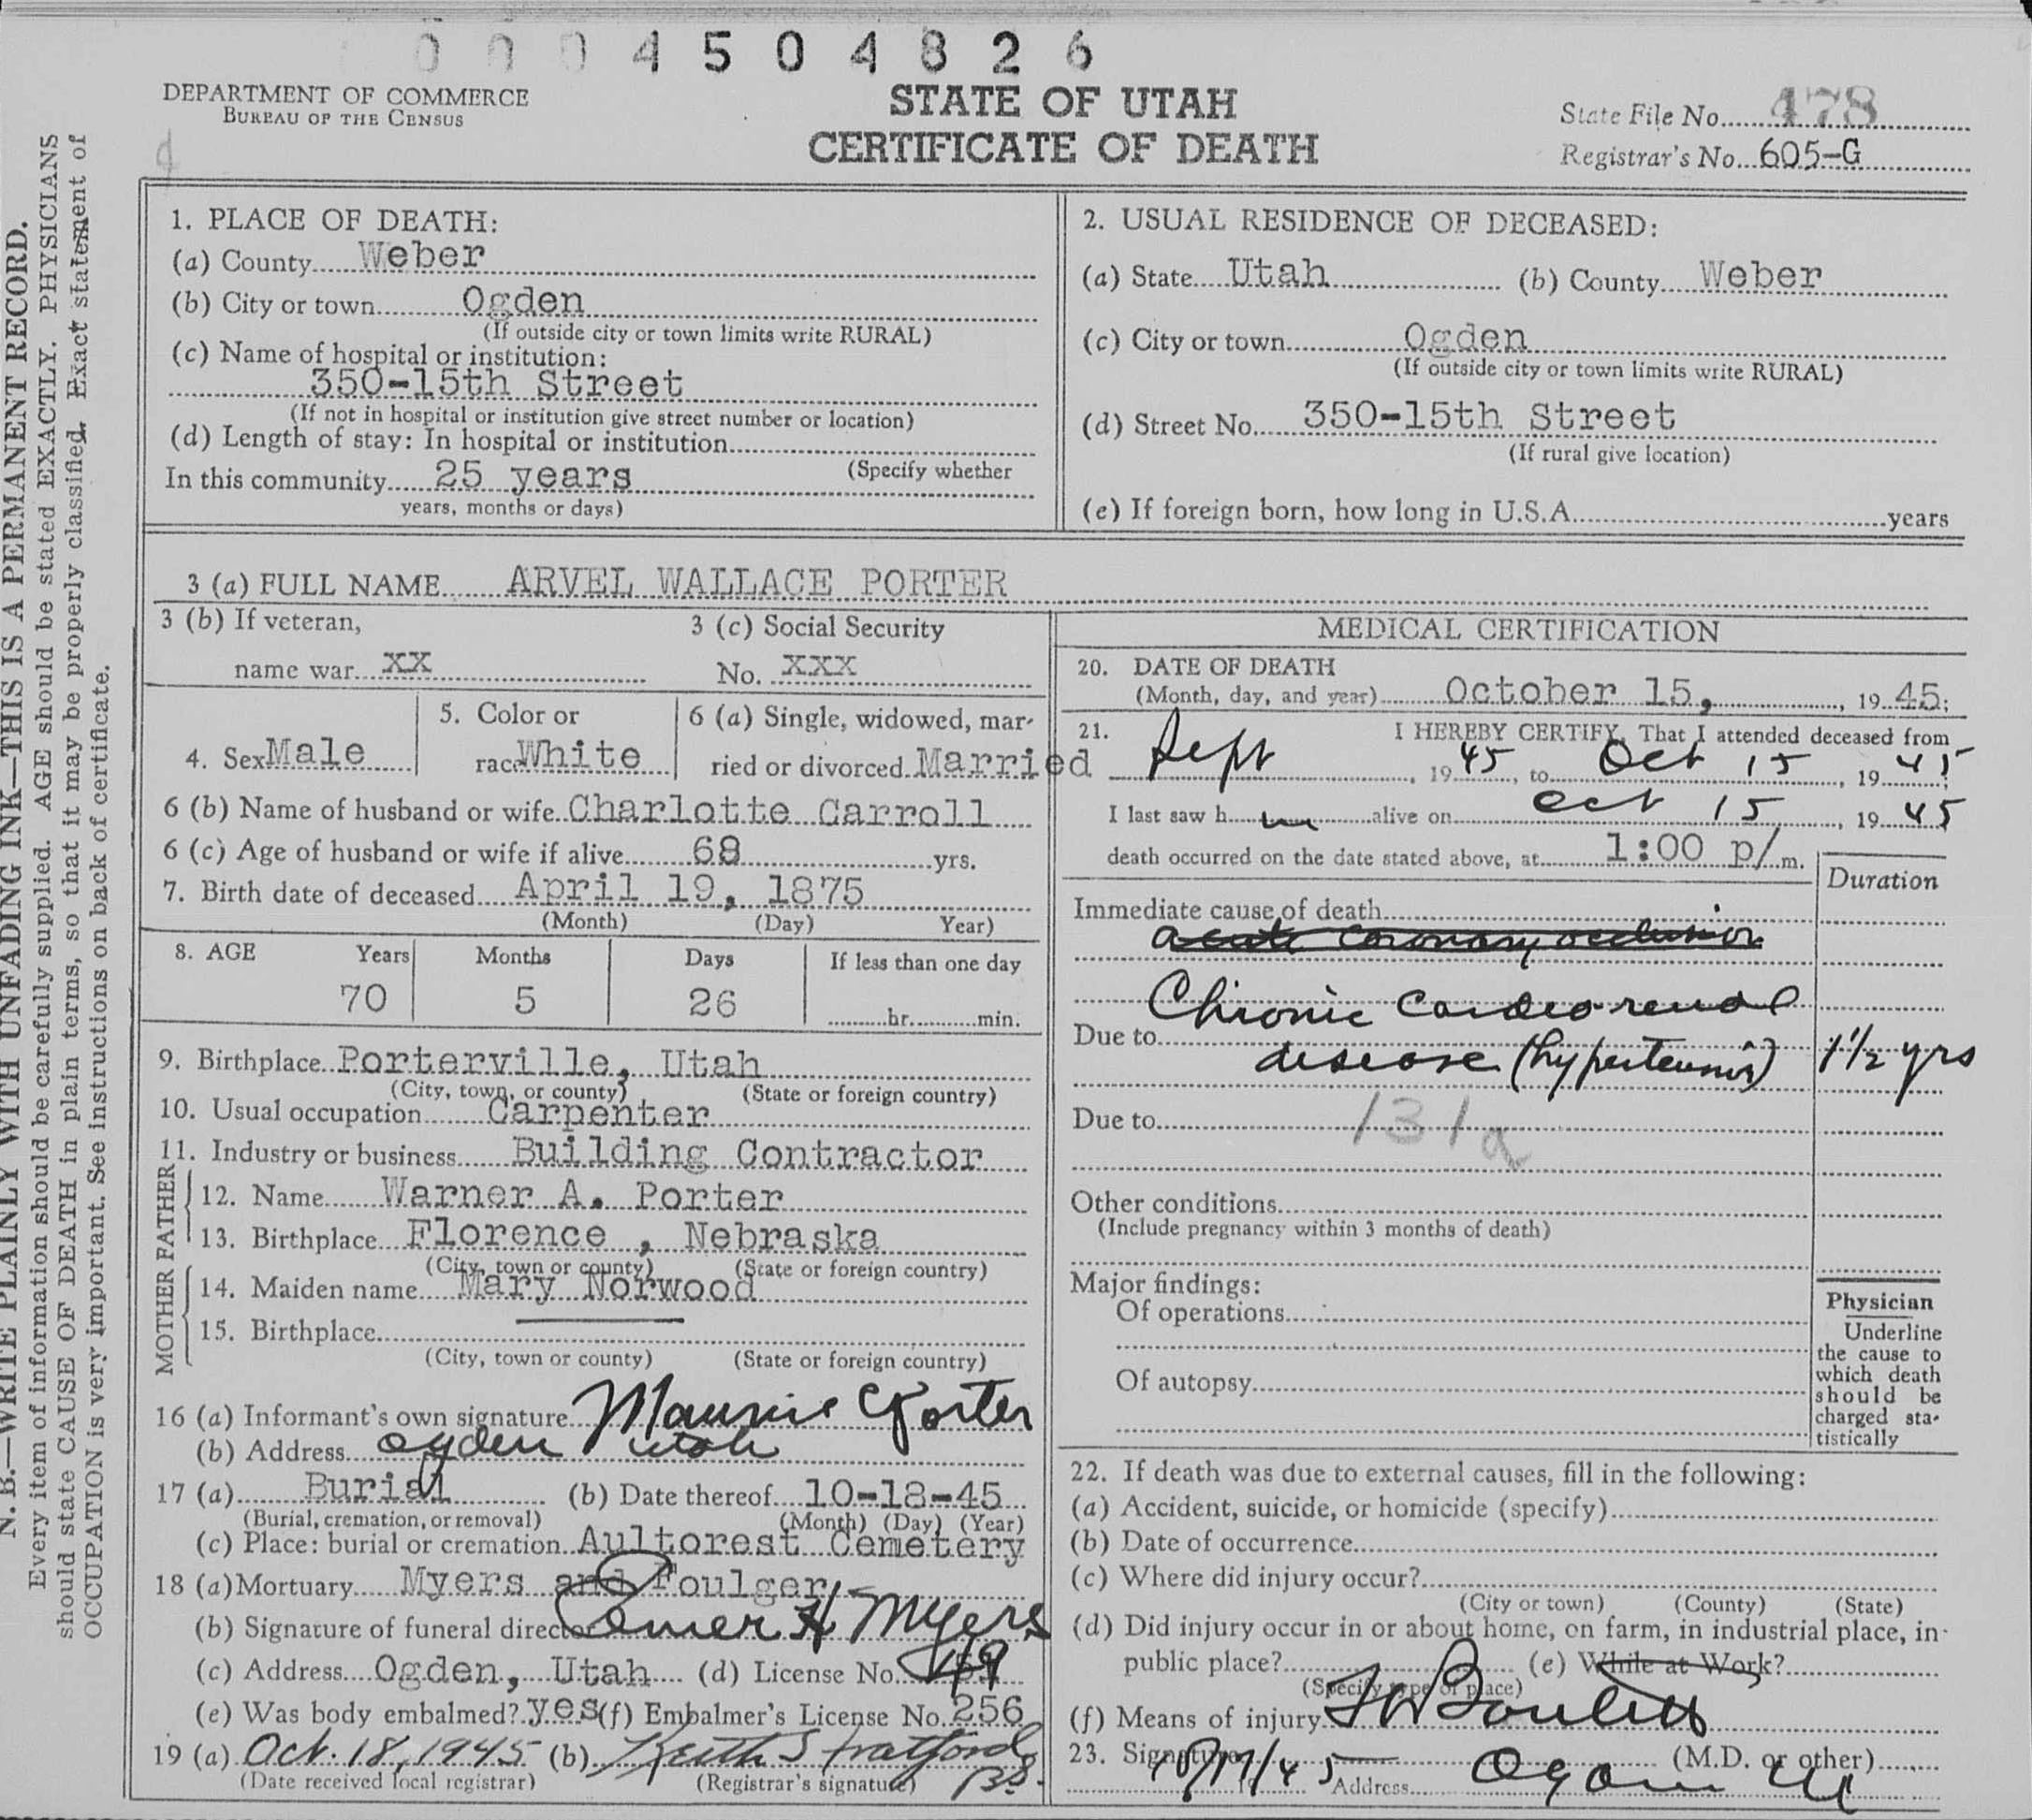 0004504826
DEPARTMENT OF COMMERCE
BUREAU OF THE CENSUS
STATE OF UTAH
CERTIFICATE OF DEATH
State File No. 478
Registrar's No. 605-G
N. B.—WRITE PLAINLY WITH UNFADING INK—THIS IS A PERMANENT RECORD.
Every item of information should be carefully supplied. AGE should be stated EXACTLY. PHYSICIANS
should state CAUSE OF DEATH in plain terms, so that it may be properly classified. Exact statement of
OCCUPATION is very important. See instructions on back of certificate.
1. PLACE OF DEATH:
(a) County Weber
(b) City or town Ogden
(If outside city or town limits write RURAL)
(c) Name of hospital or institution:
350-15th Street
(If not in hospital or institution give street number or location)
(d) Length of stay: In hospital or institution
(Specify whether
In this community 25 years
years, months or days)
2. USUAL RESIDENCE OF DECEASED:
(a) State Utah (b) County Weber
(c) City or town Ogden
(If outside city or town limits write RURAL)
(d) Street No. 350-15th Street
(If rural give location)
(e) If foreign born, how long in U.S.A. years
3 (a) FULL NAME ARVEL WALLACE PORTER
3 (b) If veteran,
name war xx
3 (c) Social Security
No. xxx
4. Sex Male
5. Color or
race White
6 (a) Single, widowed, mar-
ried or divorced Married
6 (b) Name of husband or wife Charlotte Carroll
6 (c) Age of husband or wife if alive 68 yrs.
7. Birth date of deceased April 19, 1875
(Month) (Day) Year)
8. AGE Years Months Days If less than one day
70 5 26 hr. min.
9. Birthplace Porterville, Utah
(City, town, or county) (State or foreign country)
10. Usual occupation Carpenter
11. Industry or business Building Contractor
FATHER
12. Name Warner A. Porter
13. Birthplace Florence , Nebraska
(City, town or county) (State or foreign country)
MOTHER
14. Maiden name Mary Norwood
15. Birthplace
(City, town or county) (State or foreign country)
16 (a) Informant's own signature Porter
(b) Address Ogden Utah
17 (a) Burial (b) Date thereof 10-18-45
(Burial, cremation, or removal) (Month) (Day) (Year)
(c) Place: burial or cremation Aultorest Cemetery
18 (a) Mortuary Myers and Foulger
(b) Signature of funeral director Elmer H Myers
(c) Address Ogden, Utah (d) License No.
(e) Was body embalmed? yes (f) Embalmer's License No. 256
19 (a) Oct. 18, 1945 (b) Keith Stratford
(Date received local registrar) (Registrar's signature) BS.
MEDICAL CERTIFICATION
20. DATE OF DEATH
(Month, day, and year) October 15, , 19 45;
21. I HEREBY CERTIFY, That I attended deceased from
Sept , 19 45, to Oct 15, 19 45;
I last saw h im alive on Oct 15, 19 45
death occurred on the date stated above, at 1:00 p/m.
Duration
Immediate cause of death
acute coronary occlusion
Chronic Cardeo-renal
Due to disease (hypertension) 1½ yrs
Due to 131a
Other conditions
(Include pregnancy within 3 months of death)
Major findings:
Of operations
Of autopsy
Physician
Underline
the cause to
which death
should be
charged sta-
tistically
22. If death was due to external causes, fill in the following:
(a) Accident, suicide, or homicide (specify)
(b) Date of occurrence
(c) Where did injury occur?
(City or town) (County) (State)
(d) Did injury occur in or about home, on farm, in industrial place, in
public place? (e) While at Work?
(Specify type of place)
(f) Means of injury
23. Signature (M.D. or other)
Address Ogden